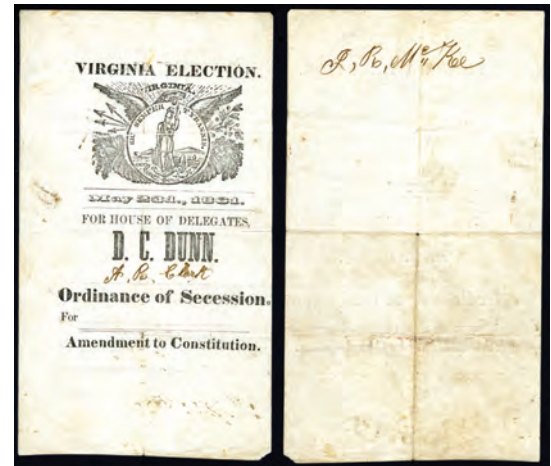 VIRGINIA ELECTION.
VIRGINIA.
SIC SEMPER TYRANNIS.
May 23d., 1861.
FOR HOUSE OF DELEGATES,
D. C. DUNN.
A. R. Clark
Ordinance of Secession.
For
Amendment to Constitution.
J, R, McKee